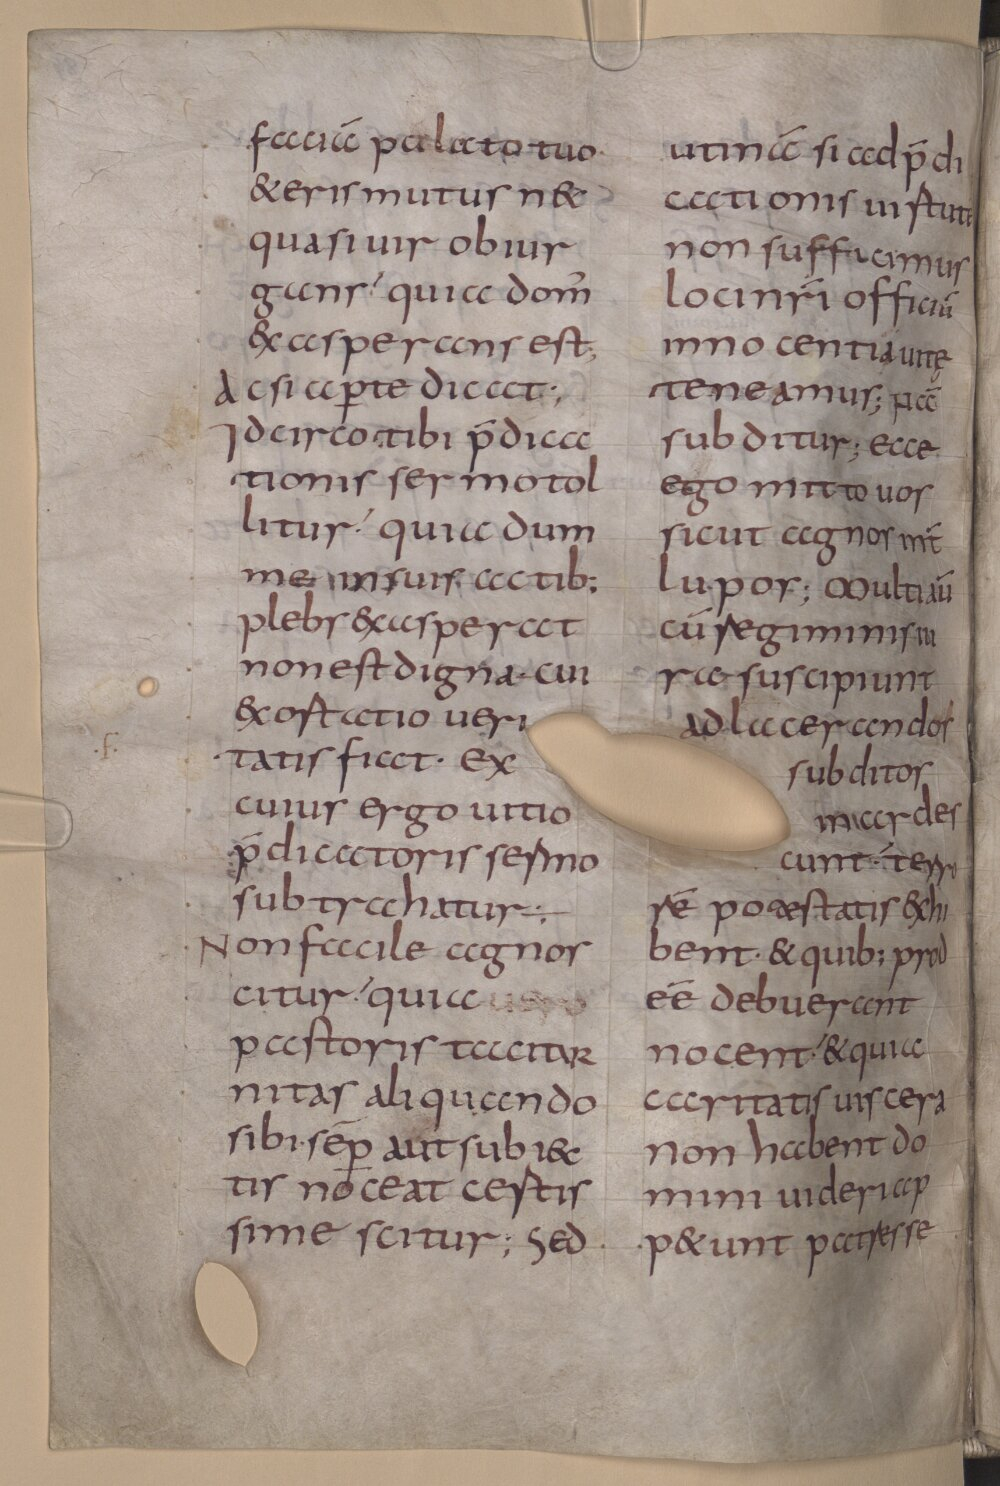 faciā palato tuo
&eris mutus n&
quasi uir obiur
gans quia dom̄
&xasperans est;
Ac si aperte dicat;
Idcirco tibi p̄dica
tionis sermo tol
litur quia dum
me in suis actib;
plebs &xasperat
non est digna cui
&xostatio ueri
.f.
tatis fiat. Ex
cuius ergo uitio
p̄dicatoris sermo
subtrahatur;
Non facile agnos
citur quia
pastoris tacitur
nitas aliquando
sibi sēp aut subi&
tis noceat certis
sime scitur; Sed
utinā si ad p̄di
cationis uirtutē
non sufficimus
loci nr̄i officiū
innocentia uitę
teneamus;
subditur; ecce
ego mitto uos
sicut agnos int̄
lupos; Multi aū
cū regiminis iu
ra suscipiunt
ad lacerandos
subditos
inardes
cunt terro
rē potestatis &xhi
bent. & quib; prod
eē debuerant
nocent & quia
caritatis uiscera
non habent do
mini uideri ap
p&unt patres se